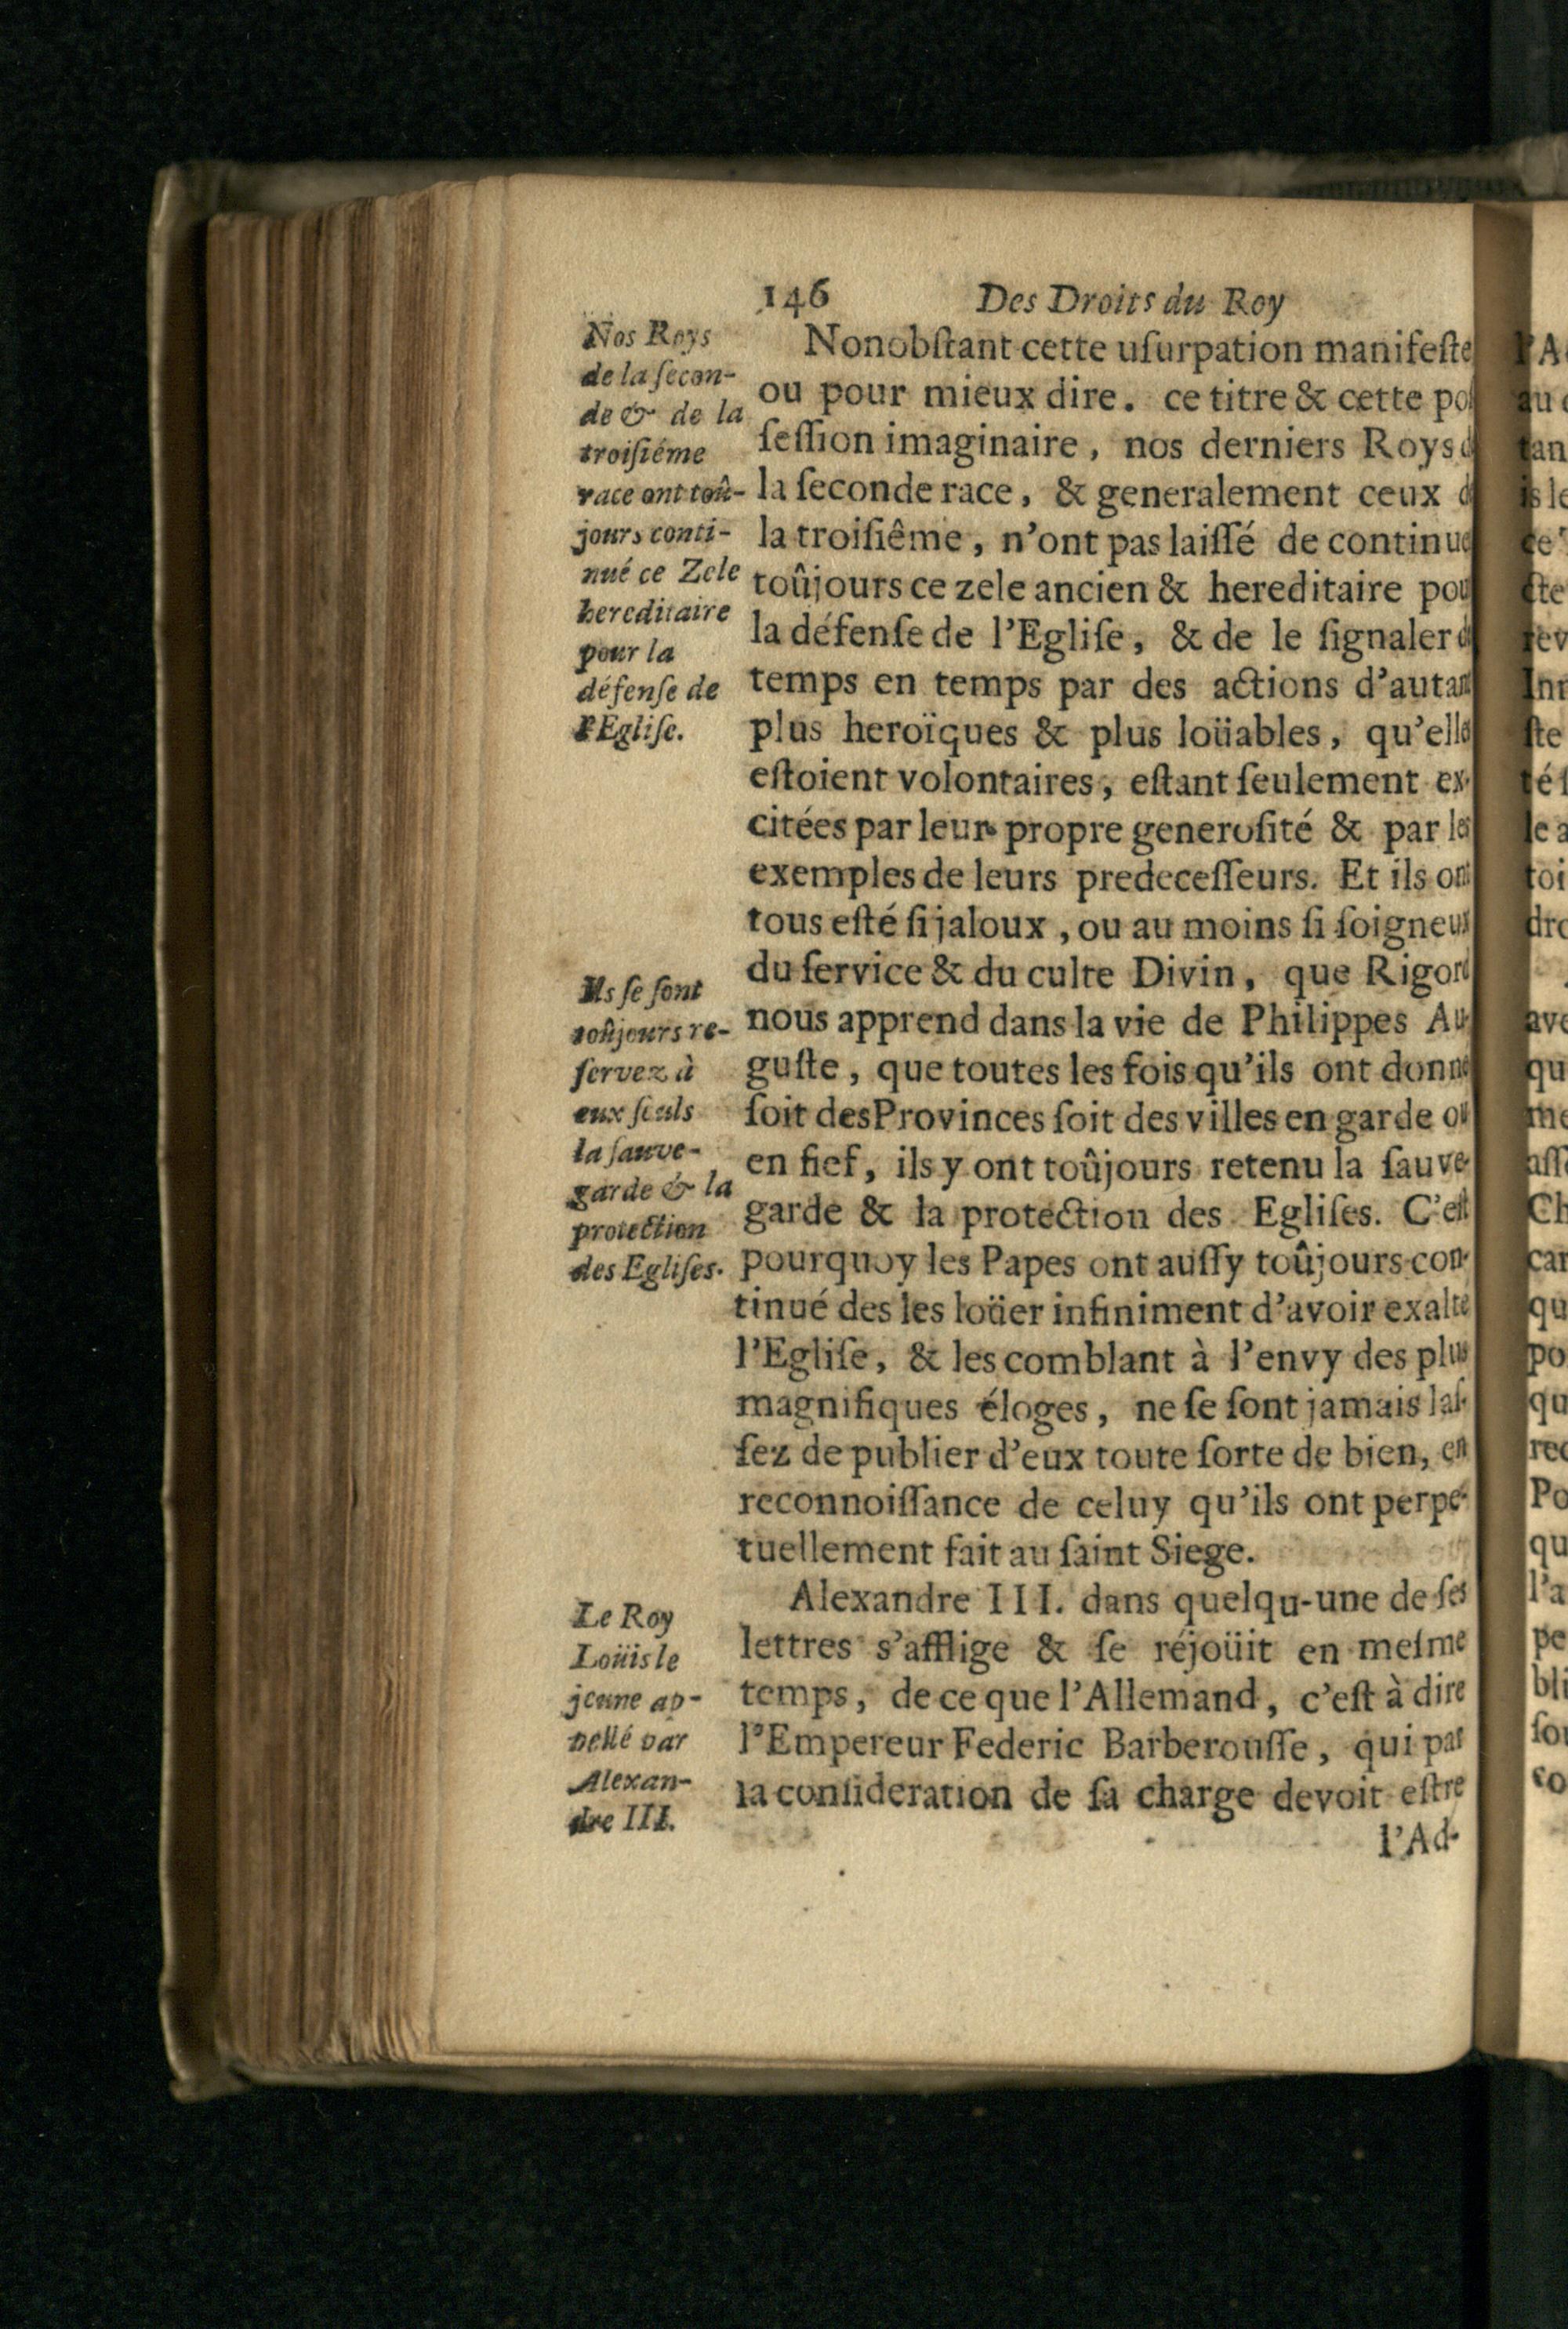 146 Des Droits du Roy
Nos Roys
de la ſecon-
de & de la
troiſiéme
race ont toû-
jours conti-
nué ce Zele
hereditaire
pour la
défenſe de
l'Egliſe.
Ils ſe ſont
toûjours re-
ſervez à
eux ſeuls
la ſauve-
garde & la
protection
des Egliſes.
Le Roy
Loüis le
jeune ap-
pellé par
Alexan-
dre III.
Nonobſtant cette uſurpation manifeſte
ou pour mieux dire. ce titre & cette poſ
ſeſſion imaginaire, nos derniers Roys d
la ſeconde race, & generalement ceux d
la troiſiême, n'ont pas laiſſé de continue
toûjours ce zele ancien & hereditaire pou
la défenſe de l'Egliſe, & de le ſignaler d
temps en temps par des actions d'autant
plus heroïques & plus loüables, qu'elles
eſtoient volontaires, eſtant ſeulement ex-
citées par leur propre generoſité & par les
exemples de leurs predeceſſeurs. Et ils ont
tous eſté ſi jaloux, ou au moins ſi ſoigneux
du ſervice & du culte Divin, que Rigord
nous apprend dans la vie de Philippes Au-
guſte, que toutes les fois qu'ils ont donné
ſoit des Provinces ſoit des villes en garde ou
en fief, ils y ont toûjours retenu la ſauve-
garde & la protection des Egliſes. C'eſt
pourquoy les Papes ont auſſy toûjours con-
tinué des les loüer infiniment d'avoir exalté
l'Egliſe, & les comblant à l'envy des plus
magnifiques éloges, ne ſe ſont jamais laſ-
ſez de publier d'eux toute ſorte de bien, en
reconnoiſſance de celuy qu'ils ont perpe-
tuellement fait au ſaint Siege.
Alexandre III. dans quelqu-une de ſes
lettres s'afflige & ſe réjoüit en meſme
temps, de ce que l'Allemand, c'eſt à dire
l'Empereur Federic Barberouſſe, qui par
la conſideration de ſa charge devoit eſtre
l'Ad-